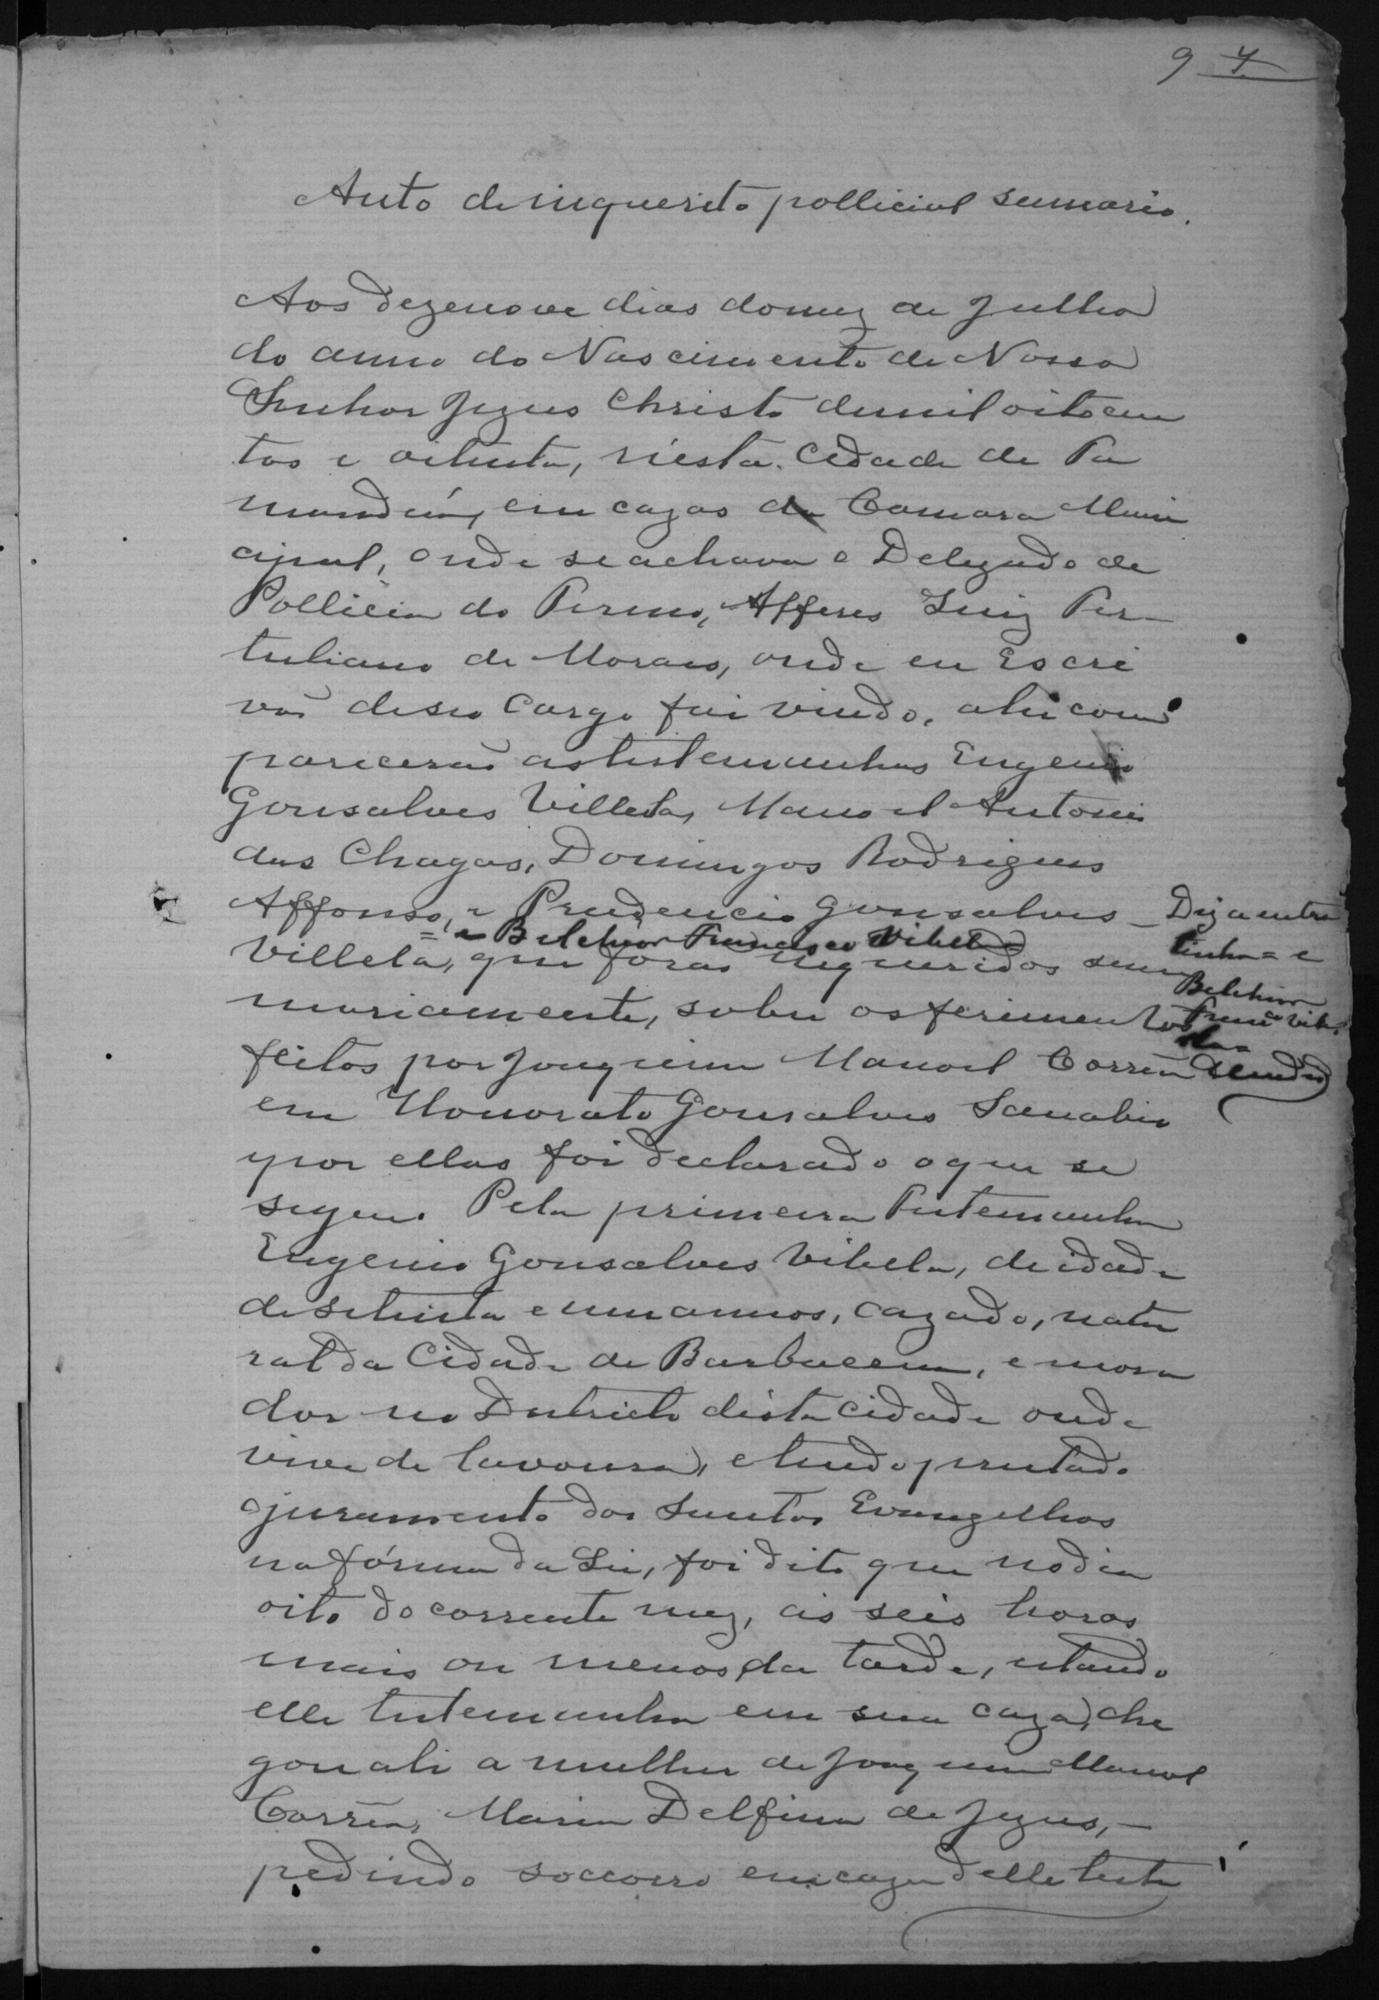 9 7
Auto de inquerito pollicial sumario.
Aos dezenove dias do mez de Julho
do anno do Nascimento de Nosso
Senhor Jezus Christo de mil oitocen
tos e oitenta, n'esta Cidade de Pa
tos e em cazas da Camara Muni
cipal, onde se achava o Delegado de
Pollicia do Termo, Alferes Luiz Ter-
tuliano de Moraes, onde eu Escri
vão deseo cargo fui vindo, ahi com
parecerão as testemunhas Eugenio
Gonsalves Villela, Manoel Antonio
das Chagas, Domingos Rodrigues
Affonso, e Prudencio Gonsalves _
= e Belchior Francisco Vilela =
Villela, que forão inqueridos sum
mariamente, sobre os ferimentos
feitos por Joaquim Manoel Corrêa
em Honorato Gonsalves Sanabio
e por ellas foi declarado o que se
segue. Pela primeira Testemunha
Eugenio Gonsalves Vilela, de idade
de setenta e um annos, cazado, natu
ral da Cidade de Barbacena, e mora
dor no Districto desta cidade onde
vive de lavoura, e tendo prestado
o juramento dos Santos Evangelhos
na fórma da Lei, foi dito que no dia
oito do corrente mez, as seis horas
mais ou menos da tarde, estando
elle testemunha em sua caza, che
gou ali a mulher de Joaquim Manoel
Corrêa, Maria Delfina de Jezus, _
pedindo soccorro em caza delle teste
Diz a entre
linha = e
Belchior
Franco Vile
la =